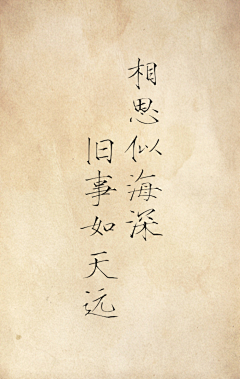 相思似海深
旧事如天远